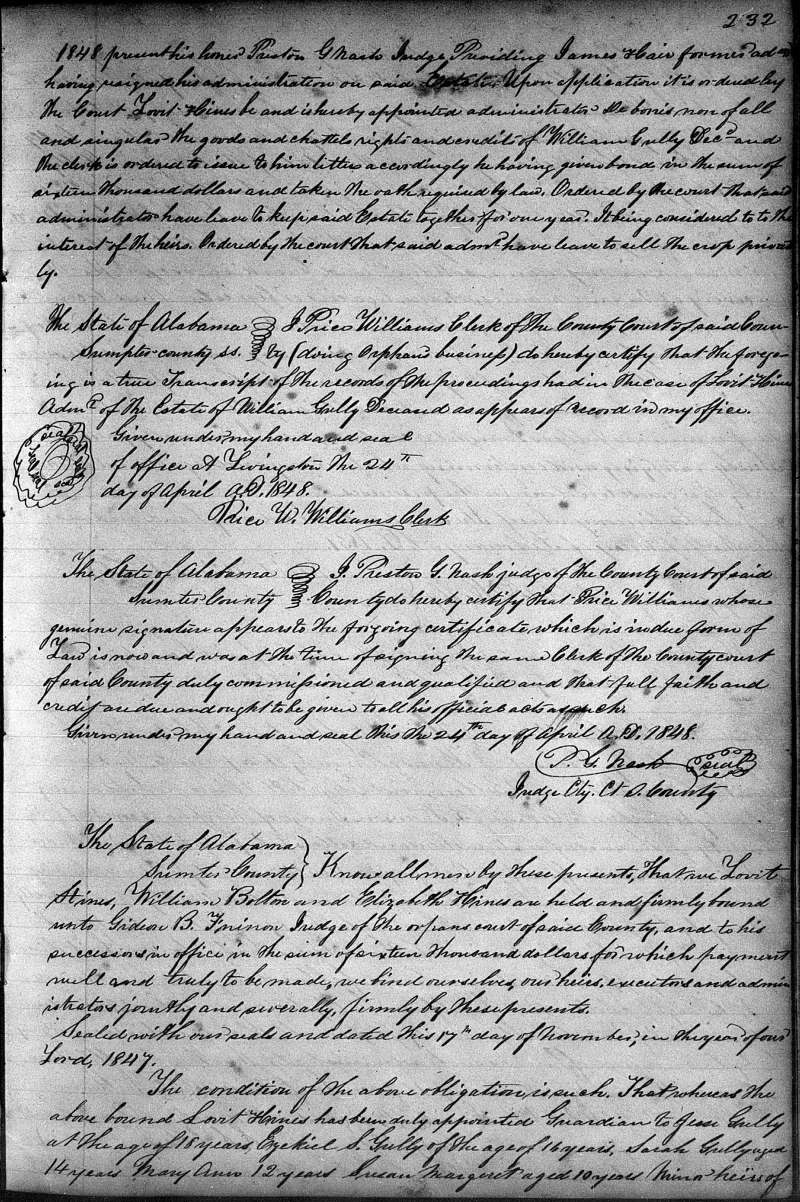 232
1848 present his honor Preston G Nash Judge Presiding James Hair former adm
having resigned his administration on said Estate. Upon application it is ordered by
the Court Lovit Hines be and is hereby appointed administrator De bonis non of all
and singular the goods and chattels rights and credits of William Gully Decd and
the clerk is ordered to issue to him letters accordingly he having given bond in the sum of
sixteen thousand dollars and taken the oath required by law. Ordered by the court that said
administrator have leave to keep said Estate together for one year. It being considered to to the
interest of the heirs. Ordered by the court that said admr have leave to sell the crop private
ly.
The State of Alabama I Price Williams Clerk of the County Court of said Coun
Sumpter county ss. ty (doing Orphans business) do hereby certify that the forego
ing is a true Transcript of the records of the proceedings had in the case of Lovit Hines
Admr of the Estate of William Gully Deceased as appears of record in my office.
Given under my hand and seal
of office at Livingston the 24th
day of April A.D. 1848.
seal
Price W. Williams Clerk
The State of Alabama I. Preston G. Nash judge of the County Court of said
Sumter County County do hereby certify that Price Williams whose
genuine signature appears to the forgoing certificate which is in due form of
Law is now and was at the time of signing the same Clerk of the County court
of said County duly commissioned and qualified and that full faith and
credit are due and ought to be given to all his official acts as such.
Given under my hand and seal this the 24th day of April A.D. 1848.
P. G. Nash seal
Judge Cty. Ct S. County
The State of Alabama
Sumter County Know all men by these presents, That we Lovit
Hines, William Bolton and Elizabeth Hines are held and firmly bound
unto Gideon B. Judge of the orpans court of said County, and to his
successors in office in the sum of sixteen thousand dollars for which payment
well and truly to be made, we bind ourselves, our heirs, executors and admin
istrators jointly and severally, firmly by these presents.
Sealed with our seals and dated this 17th day of November, in the year of our
Lord, 1847.
The condition of the above obligation is such. That whereas the
above bound Lovit Hines has been duly appointed Guardian to Jesse Gully
at the age of 18 years, Ezekiel S. Gully of the age of 16 years, Sarah Gully aged
14 years Mary Ann 12 years Susan Margaret aged 10 years Minor heirs of